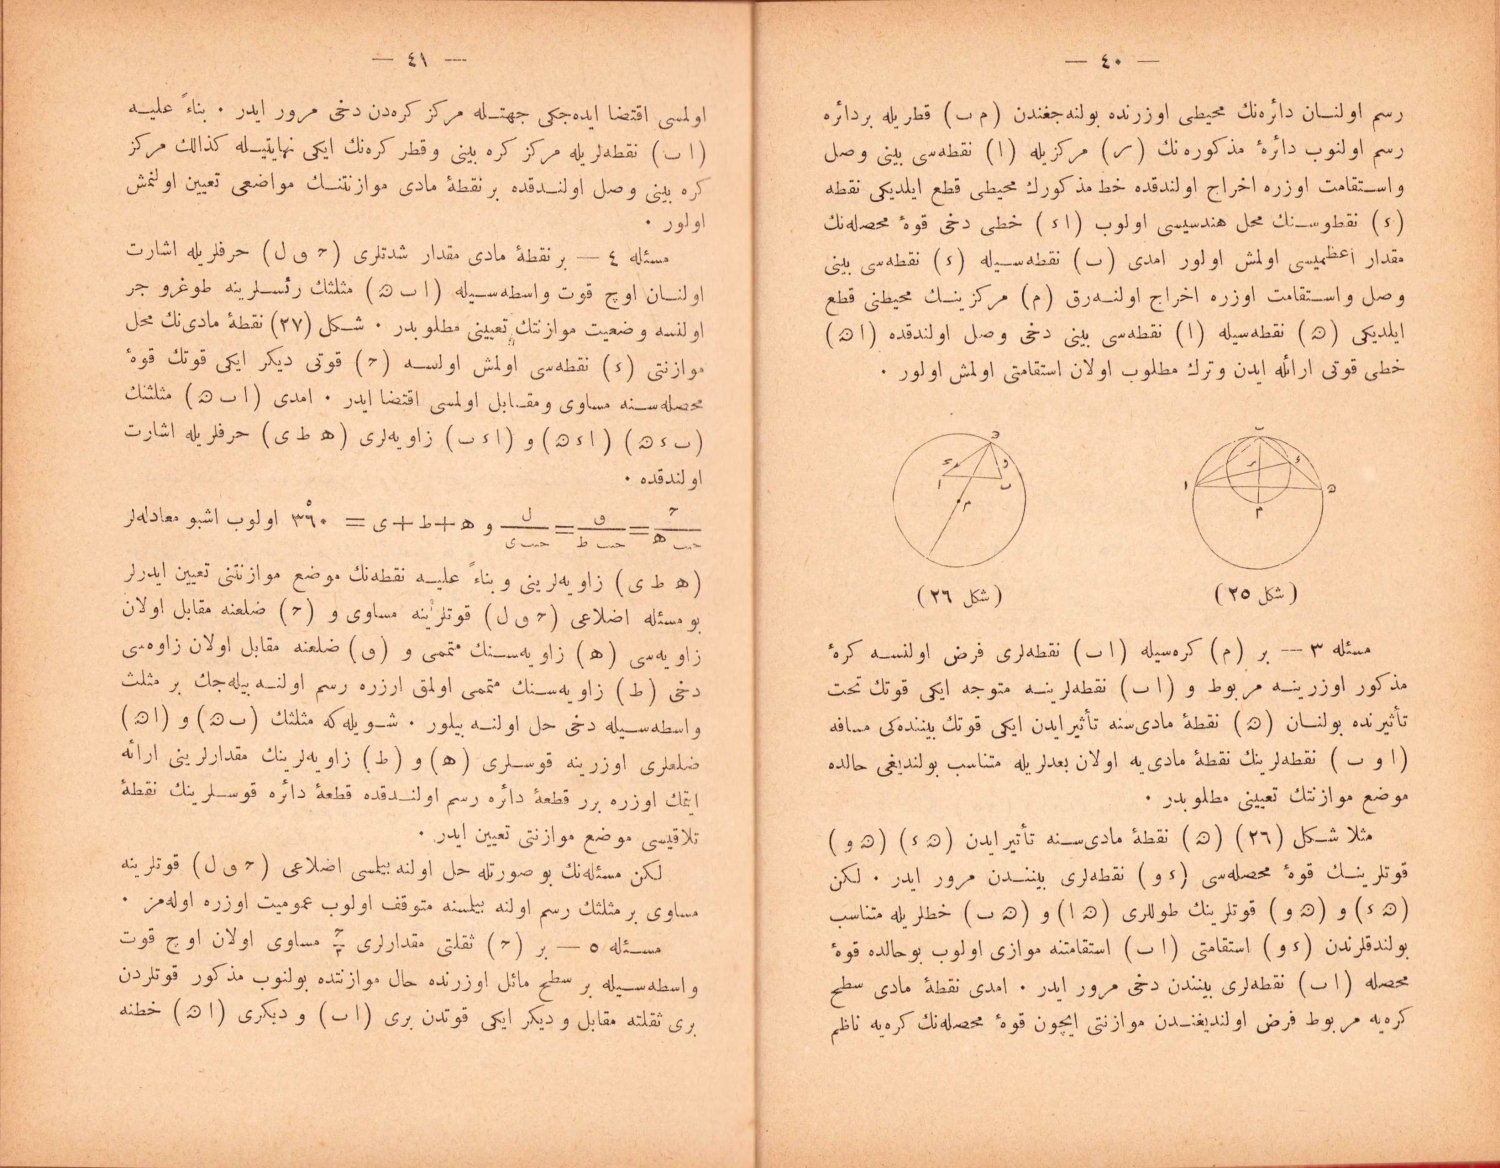 — ٤٠ —
رسم اولنان دائره‌نك محیطی اوزرنده بولنه‌جغندن (م ب) قطریله بردائره
رسم اولنوب دائرهٔ مذكوره‌نك (ر) مركزیله (ا) نقطه‌سی بینی وصل
واستقامت اوزره اخراج اولندقده خط مذكورك محیطی قطع ایلدیكی نقطه
(ء) نقطوسنك محل هندسیسی اولوب (اء) خطی دخی قوهٔ محصله‌نك
مقدار اعظمیسی اولمش اولور امدی (ب) نقطه‌سیله (ء) نقطه‌سی بینی
وصل واستقامت اوزره اخراج اولنه‌رق (م) مركزینك محیطنی قطع
ایلدیكی (ﻫ) نقطه‌سیله (ا) نقطه‌سی بینی دخی وصل اولندقده (اﻫ)
خطی قوتی ارائه ایدن وترك مطلوب اولان استقامتی اولمش اولور ٠
(شكل ٢٥)
(شكل ٢٦)
مسئله ٣ — بر (م) كره‌سیله (اب) نقطه‌لری فرض اولنسه كرهٔ
مذكور اوزرینه مربوط و (اب) نقطه‌لرینه متوجه ایكی قوتك تحت
تأثیرنده بولنان (ﻫ) نقطهٔ مادی‌سنه تأثیر ایدن ایكی قوتك بیننده‌كی مسافه
(ا و ب) نقطه‌لرینك نقطهٔ مادی‌یه اولان بعدلریله متناسب بولندیغی حالده
موضع موازنتك تعیینی مطلوبدر ٠
مثلا شكل (٢٦) (ﻫ) نقطهٔ مادی‌سنه تأثیر ایدن (ﻫ ء) (ﻫ و)
قوتلرینك قوهٔ محصله‌سی (ء و) نقطه‌لری بیننـدن مرور ایدر ٠ لكن
(ﻫ ء) و (ﻫ و) قوتلرینك طوللری (ﻫ ا) و (ﻫ ب) خطلریله متناسب
بولندقلرندن (ء و) استقامتی (اب) استقامتنه موازی اولوب بوحالده قوهٔ
محصله (اب) نقطه‌لری بیننندن دخی مرور ایدر ٠ امدی نقطهٔ مادی سطح
كره‌یه مربوط فرض اولندیغندن موازنتی ایچون قوهٔ محصله‌نك كره‌یه ناظم
— ٤١ —
اولمسی اقتضا ایده‌جكی جهتله مركز كره‌دن دخی مرور ایدر ٠ بناءً علیه
(اب) نقطه‌لریله مركز كره بینی وقطر كره‌نك ایكی نهایتیله كذالك مركز
كره بینی وصل اولندقده بر نقطهٔ مادی موازنتنك مواضعی تعیین اولنمش
اولور ٠
مسئله ٤ — بر نقطهٔ مادی مقدار شدتلری (ح ق ل) حرفلریله اشارت
اولنان اوچ قوت واسطه‌سیله (اب ﻫ) مثلثك رئسلرینه طوغرو جر
اولنسه وضعیت موازنتك تعیینی مطلوبدر ٠ شكل (٢٧) نقطهٔ مادی‌نك محل
موازنتی (ء) نقطه‌سی اولمش اولسه (ح) قوتی دیكر ایكی قوتك قوهٔ
محصله‌سنه مساوی ومقابل اولمسی اقتضا ایدر ٠ امدی (اب ﻫ) مثلثنك
(ب ء ﻫ) (ا ء ﻫ) و (ا ء ب) زاویه‌لری (ه ط ی) حرفلریله اشارت
اولندقده ٠
ح/حب ه = ق/حب ط = ل/حب ی و ه + ط + ی = ٣٦٠° اولوب اشبو معادله‌لر
(ه ط ی) زاویه‌لرینی وبناءً علیه نقطه‌نك موضع موازنتنی تعیین ایدرلر
بو مسئله اضلاعی (ح ق ل) قوتلرینه مساوی و (ح) ضلعنه مقابل اولان
زاویه‌سی (ه) زاویه‌سنك متممی و (ق) ضلعنه مقابل اولان زاوه‌سی
دخی (ط) زاویه‌سنك متممی اولمق ارزره رسم اولنه بیله‌جك بر مثلث
واسطه‌سیله دخی حل اولنه بیلور ٠ شویله‌كه مثلثك (ب ﻫ) و (ا ﻫ)
ضلعلری اوزرینه قوسلری (ه) و (ط) زاویه‌لرینك مقدارلرینی ارائه
ایتمك اوزره برر قطعهٔ دائره رسم اولندقده قطعهٔ دائره قوسلرینك نقطهٔ
تلاقیسی موضع موازنتی تعیین ایدر ٠
لكن مسئله‌نك بو صورتله حل اولنه بیلمسی اضلاعی (ح ق ل) قوتلرینه
مساوی بر مثلثك رسم اولنه بیلمسنه متوقف اولوب عمومیت اوزره اوله‌مز ٠
مسئله ٥ — بر (ح) ثقلتی مقدارلری ح/٢ مساوی اولان اوچ قوت
واسطه‌سیله بر سطح مائل اوزرنده حال موازنتده بولنوب مذكور قوتلردن
بری ثقلته مقابل ودیكر ایكی قوتدن بری (اب) و دیكری (ا ﻫ) خطنه